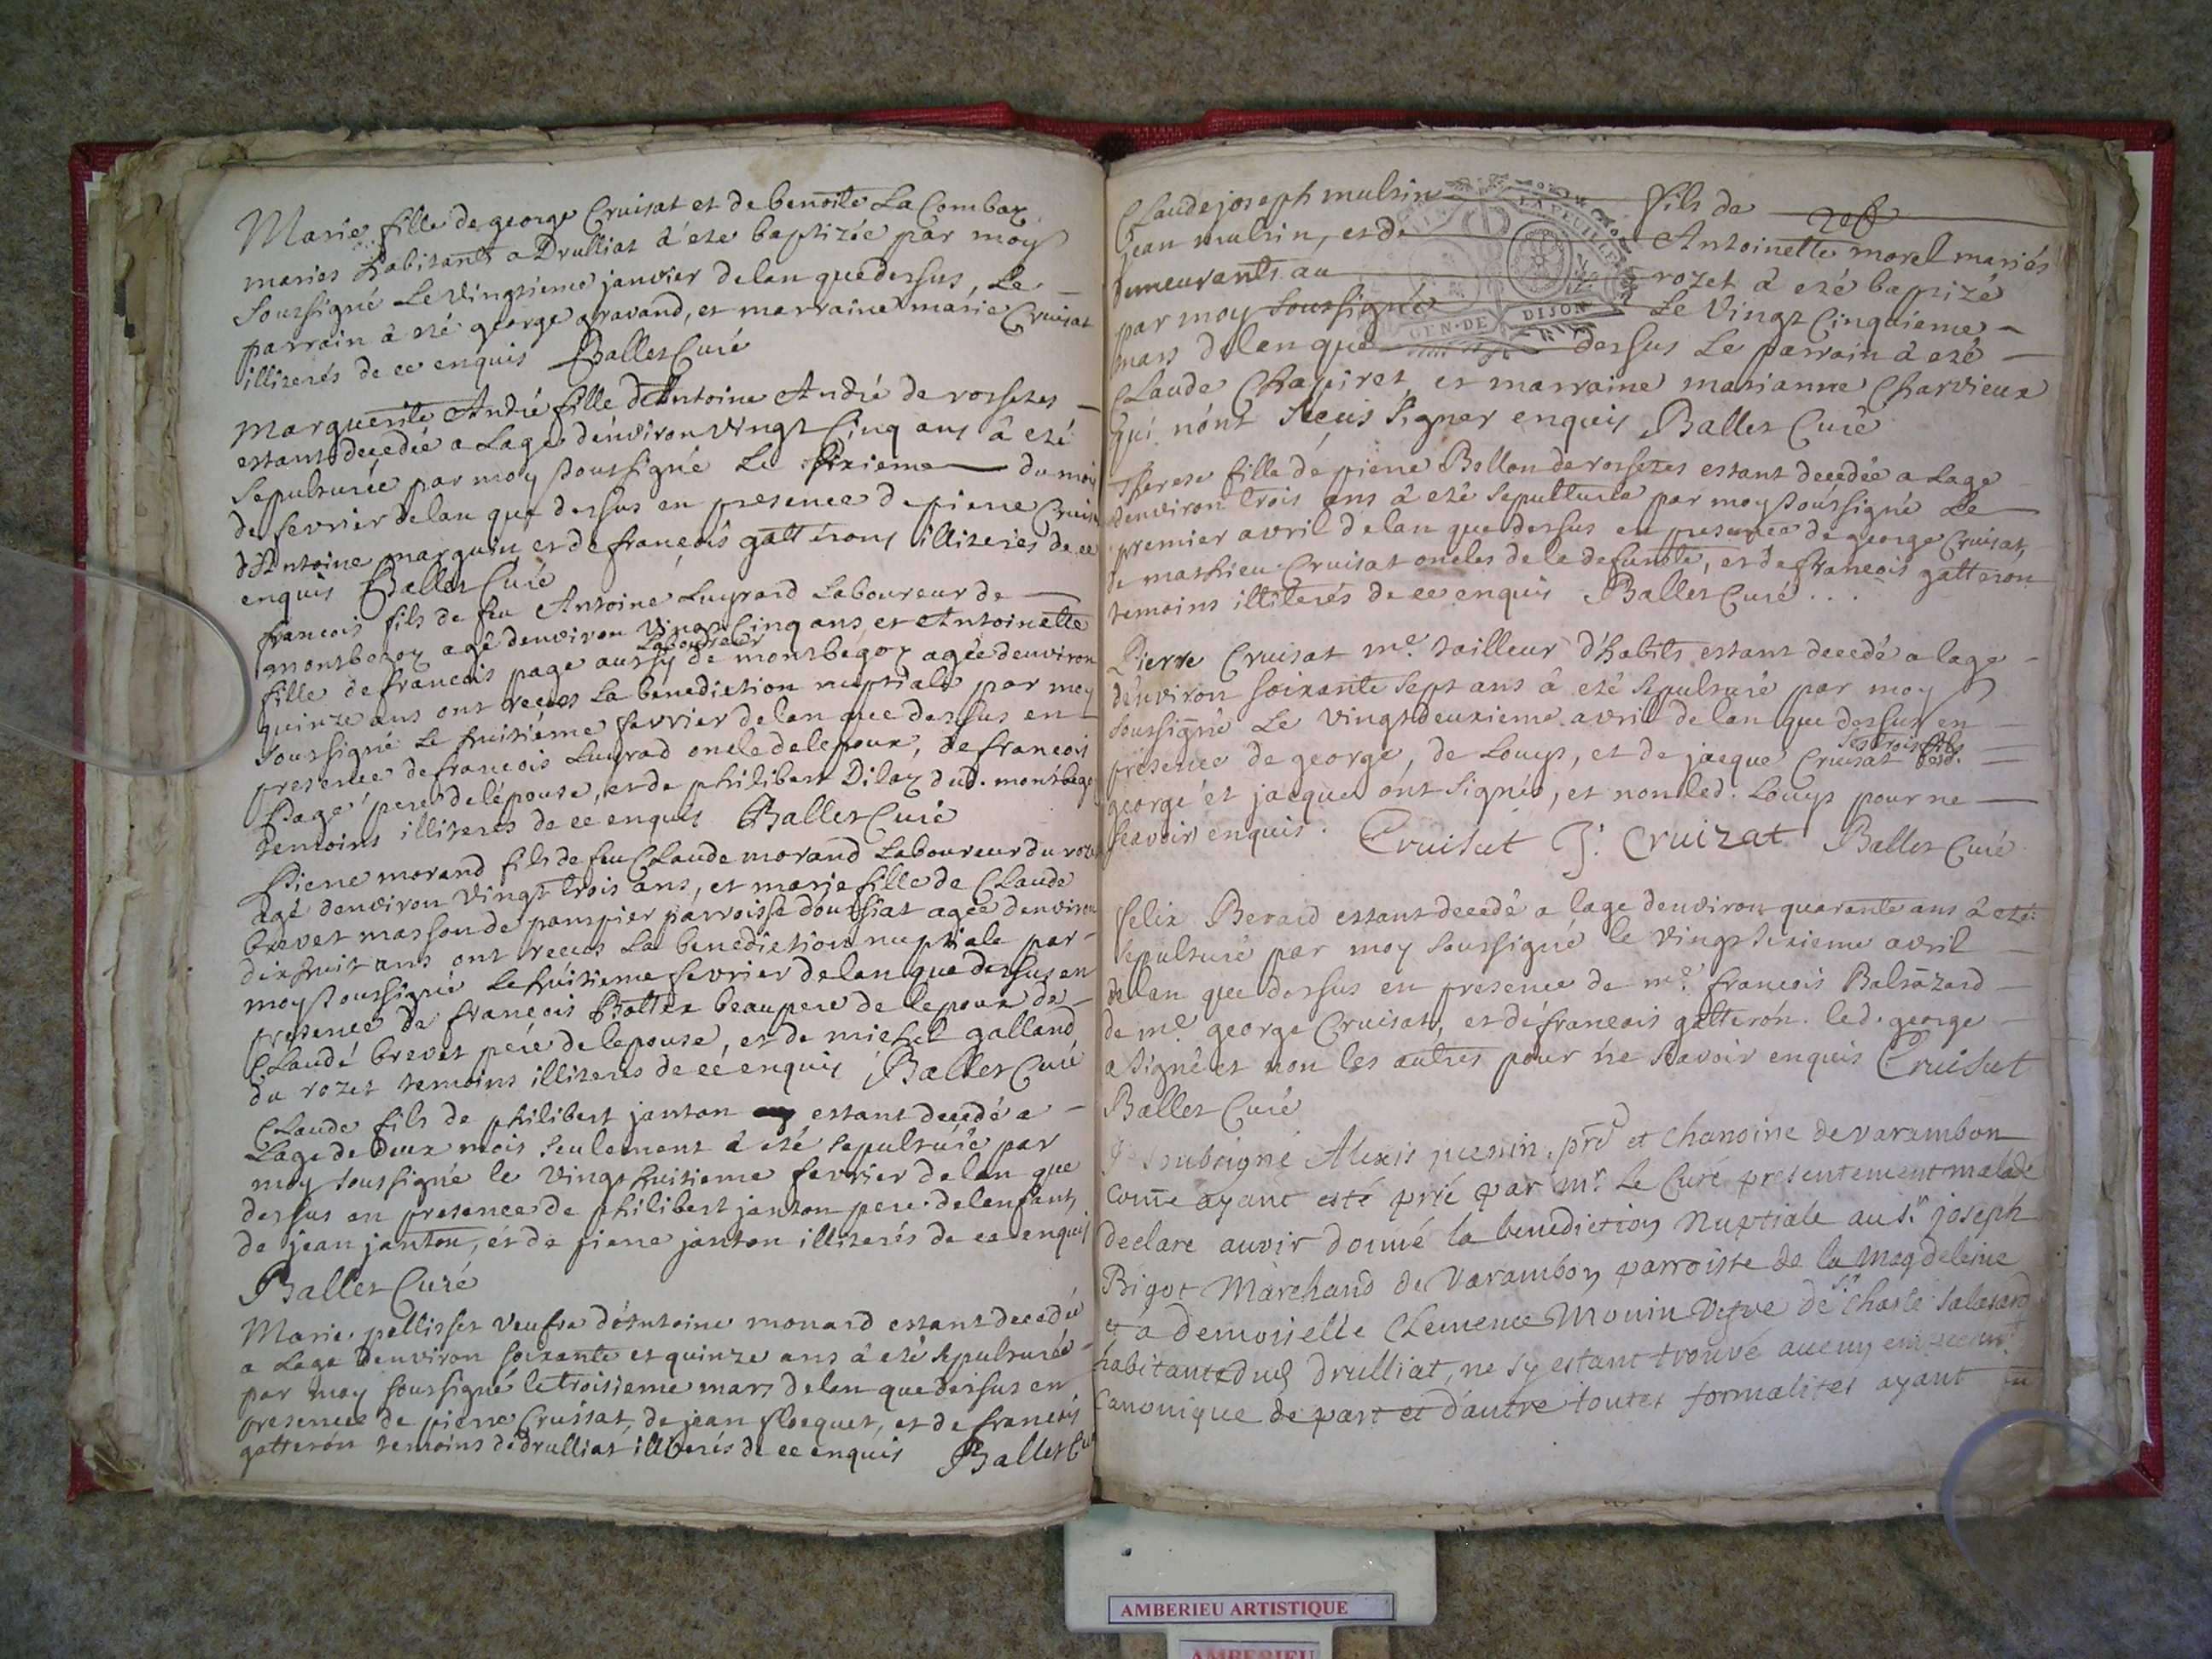 Marie fille de george Cruisat et de benoite La Combax
maries habitants a Drulliat à été baptizée par moy
soussigné Le Vingtieme janvier de lan que dessus, Le
parrain à été george gravand, et marraine marie Cruisat
illiterés de ce enquis Ballet Curé
Marguerite André fille dAntoine André de rossetes
estant decedée a Lage denviron vingt Cinq ans à eté
sepulturée par moy soussigné Le sixieme du mois
de fevrier de lan que dessus en presence de pierre Cruisat
dAntoine marguin et de francois gatteron illiterés de ce
enquis Ballet Curé
francois fils de feu Antoine Luyrard Laboureur de
montbegoy agé denviron vingt Cinq ans et Antoinette
Laboureur
fille de francois page aussy de montbegoy agée denviron
quinze ans ont receus La benediction nuptiale par moy
soussigné Le huitiéme fevrier de lan que dessus en
presence de francois Luyrad oncle de lepoux, de francois
Page pere de lépouse, et de philibert Dilay dud. montbego
temoins illiterés de ce enquis Ballet Curé
Pierre morand fils de feu Claude morand Laboureur du rozet
agé denviron vingt trois ans, et marie fille de Claude
brevet masson de pampier parroisse doussiat agée denviron
dixhuit ans ont receus La benediction nuptiale par
moy soussigné Le huitieme fevrier de lan que dessus en
presence de françois Bottex beaupere de lepoux de
Claude brevet pere de lepouse, et de michel galland
du rozet temoins illiterés de ce enquis Ballet Curé
Claude fils de philibert janton estant decedé a
Lage de deux mois seulement à eté sepulturé par
moy soussigné le vingt huitieme fevrier de lan que
dessus en presence de philibert janton pere de lenfant,
de jean janton, et de pierre janton illiterés de ce enquis
Ballet Curé
Marie pellisset veufve dAntoine monard estant decedée
a Lage denviron soixante et quinze ans à eté sepulturée
par moy soussigné le troisieme mars de lan que dessus en
presence de pierre Cruisat, de jean flocquet, et de francois
gatteron temoins de drulliat illiterés de ce enquis Ballet Cu
Claude joseph multin fils de
jean multin, et de Antoinette morel mariés
demeurants au rozet à eté baptizé
par moy soussigné Le Vingt Cinquieme
GEN. DE DIJON
mars de lan que dessus Le parrain à eté
Claude Chapiret et marraine marianne Charvieux
qui nont sceus signer enquis Ballet Curé
Therese fille de pierre Bollon de rossetes estant decedée a Lage
denviron trois ans à eté sepulturée par moy soussigné Le
premier avril de lan que dessus en presence de george Cruisat,
de mathieu Cruisat oncles de la defunte, et de francois gatteron
temoins illiterés de ce enquis Ballet Curé . . .
Pierre Cruisat me. tailleur d'habits estant decedé a lage
denviron soixante sept ans à eté sepulturé par moy
soussigné Le vingtdeuxieme avril de lan que dessus en
ses trois fils
presence de george, de Louys, et de jacque Cruisat
george et jacque ont signés, et non led. Louys pour ne
scavoir enquis. Cruisat J. Cruizat Ballet Curé
felix Berard estant decedé a lage denviron quarante ans à eté
sepulturé par moy soussigné le vingt sixieme avril
de lan que dessus en presence de me. francois Baltazard
de me. george Cruisat, et de francois gatteron. led. george
a signé et non les autres pour ne scavoir enquis Cruisat
Ballet Curé
Je soubsigné Alexis puenin, prê et chanoine de varambon
come ayant esté prié par mr. Le Curé presentement malade
declare auvir donné la benediction nuptiale au sr. joseph
Bigot Marchand de Varambon parroisse de la magdeleine
sr
et a demoiselle Clemence Monin Vefve de charle salazard
habitante dud drulliat, ne sy estant trouvé aucun
Canonique de part et d'autre toutes formalités ayant
AMBERIEU ARTISTIQUE
AMBERIEU